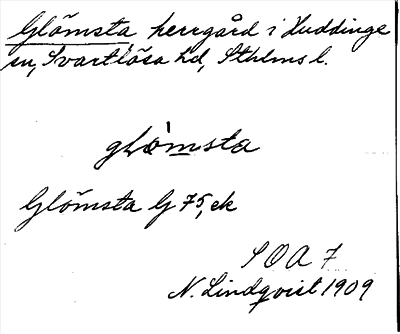 Glömsta, herrgård i Huddinge
sn, Svartlösa hd, Sthlms l.
glömsta
Glömsta G 75, ek
SOA 7
N. Lindqvist 1909